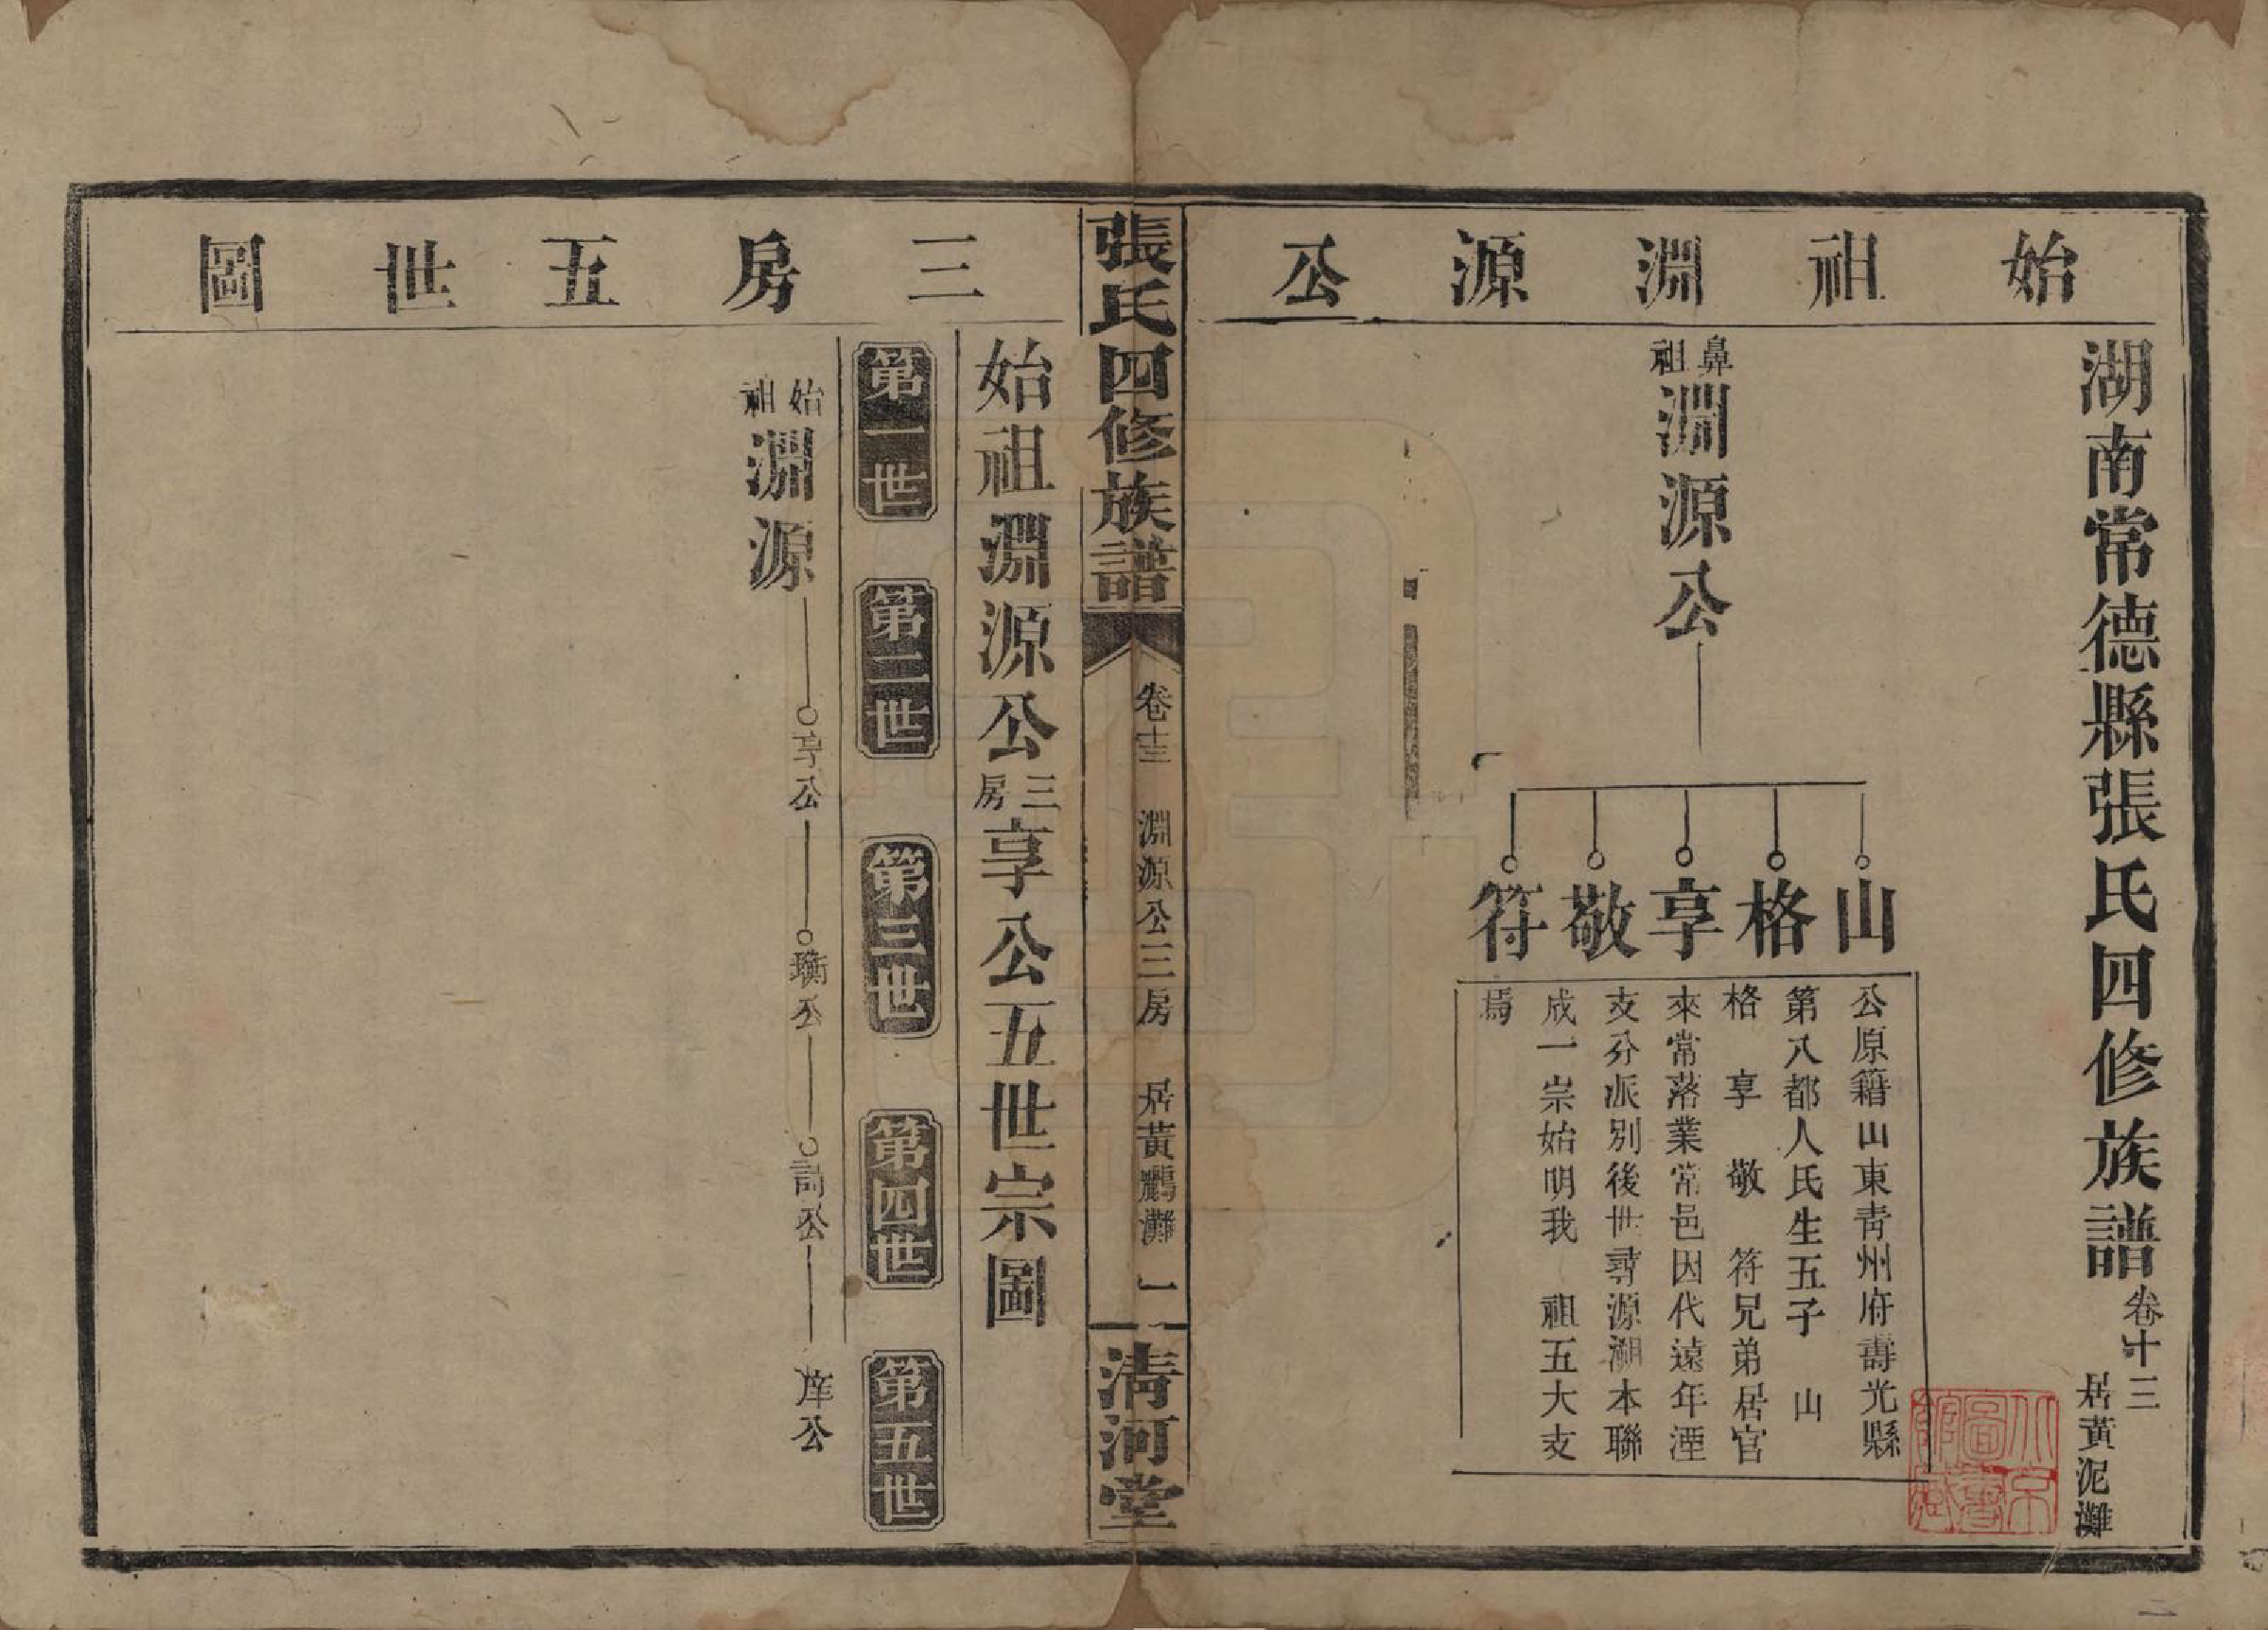 湖南常德縣張氏四修族譜卷十三居黃泥灘
始祖淵源公
鼻祖淵源公
山
格
享
敬
符
公原籍山東靑州府壽光縣
第八都人氏生五子 山
格 享 敬 符兄弟居官
來常落業常邑因代遠年湮
支分派別後世尋源溯本聯
成一崇始明我 祖五大支
焉
張氏四修族譜
卷十三 淵源公三房 居黃鸝灘 一
淸河堂
三房五世圖
始祖淵源公三房享公五世宗圖
第一世 第二世 第三世 第四世 第五世
始祖淵源
享公
公
詞公
公
北京圖書館藏